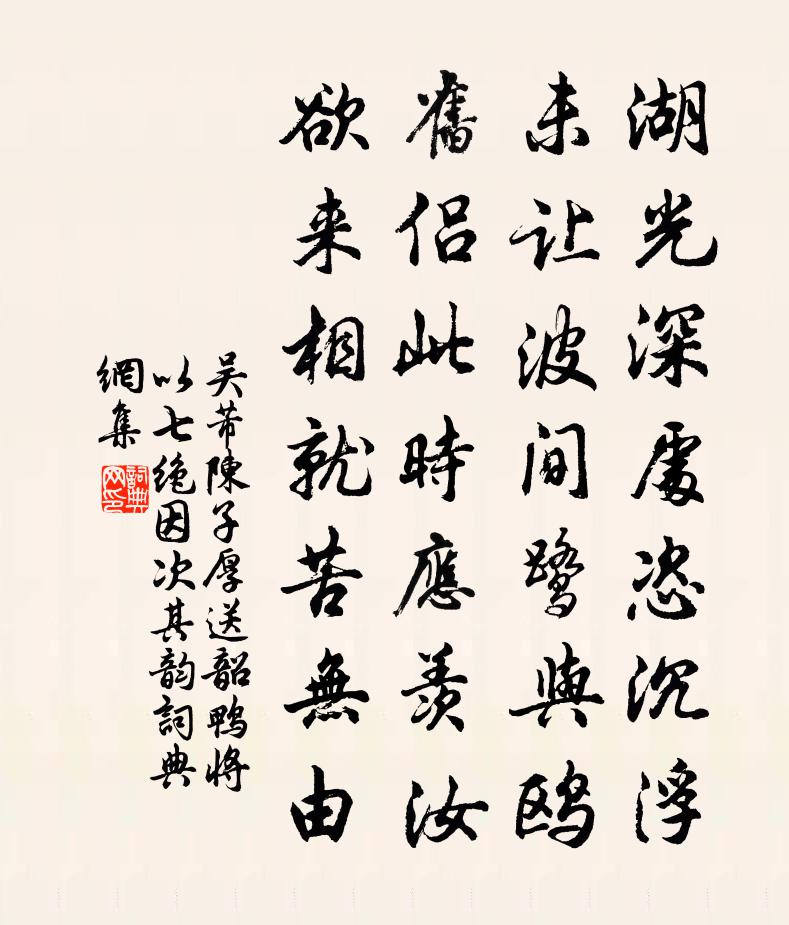 湖光深處恣沉浮
未让波间鹭與鸥
舊侣此時應羨汝
欲来相就苦無由
吴芾陳子厚送韶鸭将
以七绝因次其韵詞典
網集
詞典网印